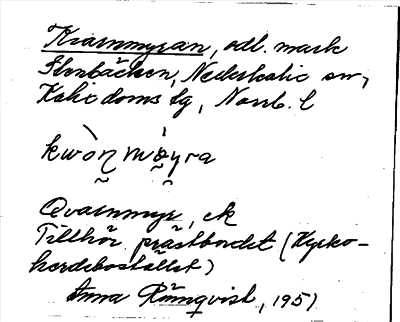 Kvarnmyran, odl. mark
Stenbäcken, Nederkalix sn,
Kalix doms lg, Norrb. l
Qvarnmyr, ek
Tillhör prästbordet (Kyrko-
herdebostället)
Anna Römqvist, 1951